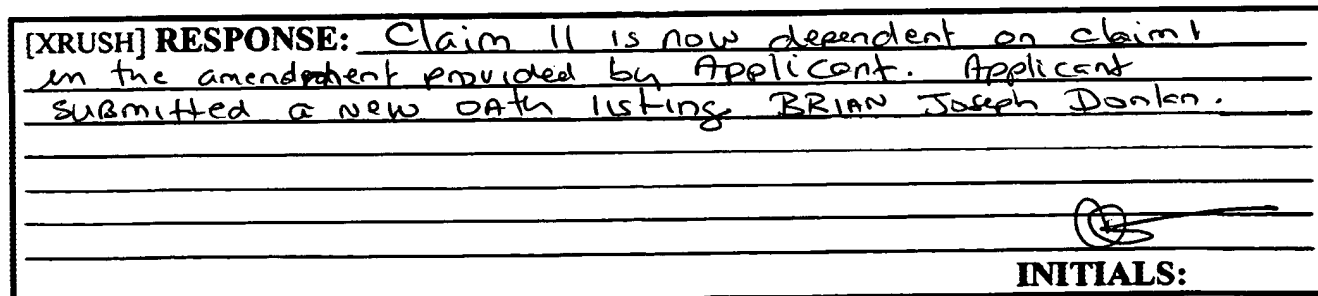 [XRUSH] RESPONSE: Claim 11 is now dependent on claim 1
in the amendment provided by Applicant. Applicant
submitted a new OATH listing BRIAN Joseph Donlan.
INITIALS: